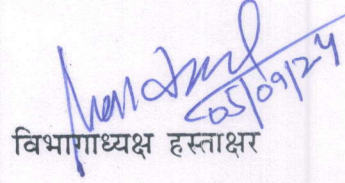 05/09/24
विभागाध्यक्ष हस्ताक्षर